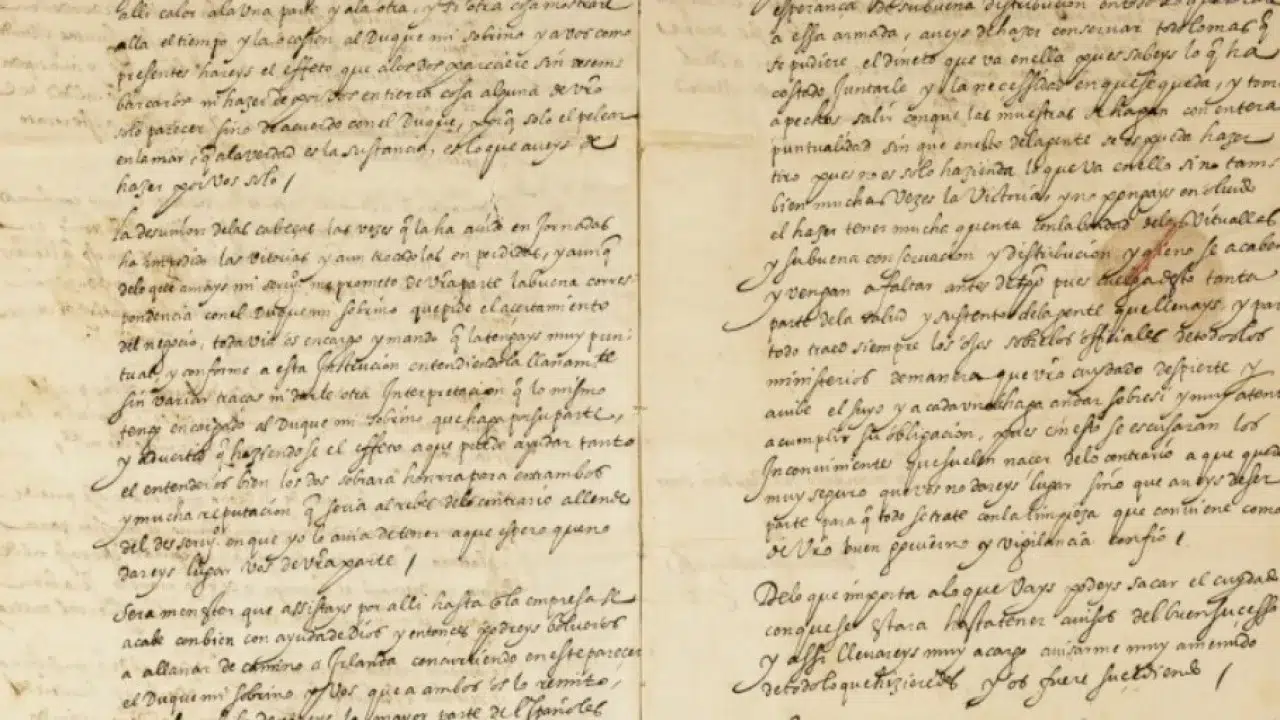 alli calor ala vna parte y ala otra, y si otra cosa mostrare
alla el tiempo y la ocasion al Duque mi sobrino y a vos como
presentes hareys el effeto que alos dos pareciere sin desem
barcaros ni hazer de por vos en tierra cosa alguna de vr̃o
solo parecer sino de acuerdo con el Duque, solo el pelear
en la mar, q̃ ala verdad es la sustancia, es lo que aveys de
hazer por vos solo /
La desunion delas cabeças las vezes q̃ la ha auido en Jornadas
ha impedido las vitorias y aun trocadolas en perdidas, y aunq̃
delo que amays mi seruiº me prometo de vr̃a parte la buena corres-
pondencia con el Duque mi sobrino que pide el acertamiento
del negocio, toda via os encargo y mando q̃ la tengays muy pun-
tual, y conforme a esta Instrucion entendiendola llanamte
sin variar traças ni darle otra Interpretacion q̃ lo mismo
tengo encargado al Duque mi sobrino que haga por su parte,
y aduertid q̃ haziendose el effeto a que puede ayudar tanto
el entenderos bien los dos sobrará honrra para entrambos
y mucha reputacion q̃ seria al reues delo contrario allende
del desseruº en que yo lo auia de tener a que espero que no
dareys lugar vos de vr̃a parte /
Sera menester que assistays por alli hasta q̃ la empresa se
acabe con bien con ayuda de Dios y entonces podreys bolueros
a allanar de camino a Irlanda concurriendo en este parecer
el Duque mi sobrino y vos que a ambos os lo remito,
la mayor parte de Españoles
esperança su buena distribucion
a essa armada, aueys de hazer conseruar todo lo mas q̃
se pudiere el dinero que va en ella pues sabeys lo q̃ ha
costado Juntarle y la necessidad en que se queda, y tom
a pechos salir con que las muestras se hagan con entera
puntualidad sin que en esto dela gente se os pueda hazer
tiro pues no es solo hazienda lo que va en ello sino tam
bien muchas vezes la Victoria, y no pongays en oluido
el hazer tener mucha quenta con la bondad delas Vituallas
y su buena conseruacion y distribucion y que no se acaben
y vengan a faltar antes de tpõ pues cuelga desto tanta
parte dela salud y sustento dela gente que lleuays, y para
todo traed siempre los ojos sobre los officiales de todos los
ministerios de manera que vr̃o cuydado despierte y
auibe el suyo y a cada vno haga andar sobre si y muy atento
a cumplir su obligacion, pues con esto se escusaran los
Inconuinientes que suelen nacer delo contrario a que quedo
muy seguro que vos no dareys lugar sino que aueys de ser
parte para q̃ todo se trate con la limpieza que conuiene como
de Vr̃o buen gouierno y vigilancia confio /
Delo que importa alo que vays podeys sacar el cuydado
con que se estara hasta tener auisos del buen sucesso
y assi lleuareys muy a cargo auisarme muy amenudo
de todo lo que hizieredes y os fuere sucediendo /